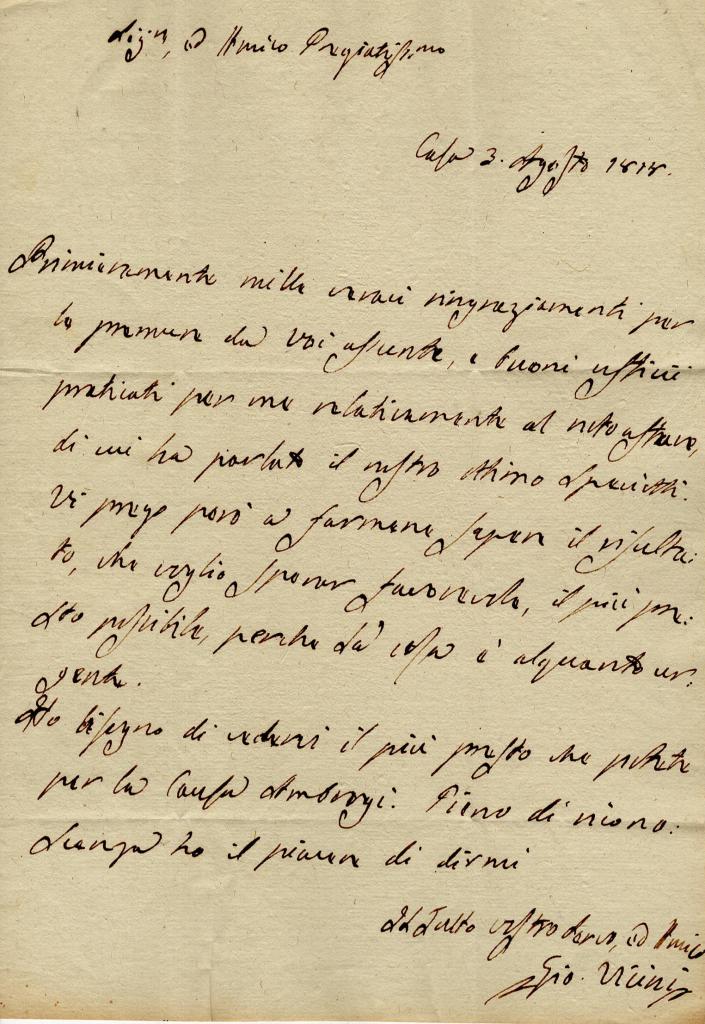 Sigre, ed Amico Pregiatissimo
Casa 3. Agosto 1818.
Primieramente mille veraci ringraziamenti per
le premure da Voi assunte, e buoni ufficii
praticati per me relativamente al noto affare,
di cui ha parlato il nostro Ottimo
Vi prego però a farmene sapere il risulta:
to, che voglio sperar favorevole, il più pre:
sto possibile, perchè la cosa è alquanto ur:
gente.
Ho bisogno di vedervi il più presto che potete
per la Causa Ambrogi. Pieno di ricono:
scenza ho il piacere di dirmi
Il Tutto vostro Servo, ed Amico
Gio. Vicini